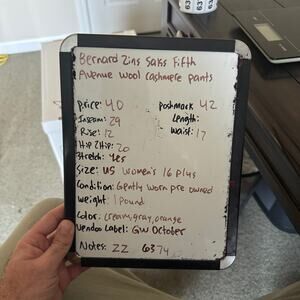 Bernard Zins Saks Fifth
Avenue Wool Cashmere pants
Price: 40 Poshmark 42
Inseam: 29 Length:
Rise: 12 Waist: 17
Hip 2 Hip: 20
Stretch: yes
Size: US Women's 16 Plus
Condition: Gently worn pre owned
Weight: 1 Pound
Color: cream, gray, orange
Vendoo Label: GW October
Notes: ZZ 6374